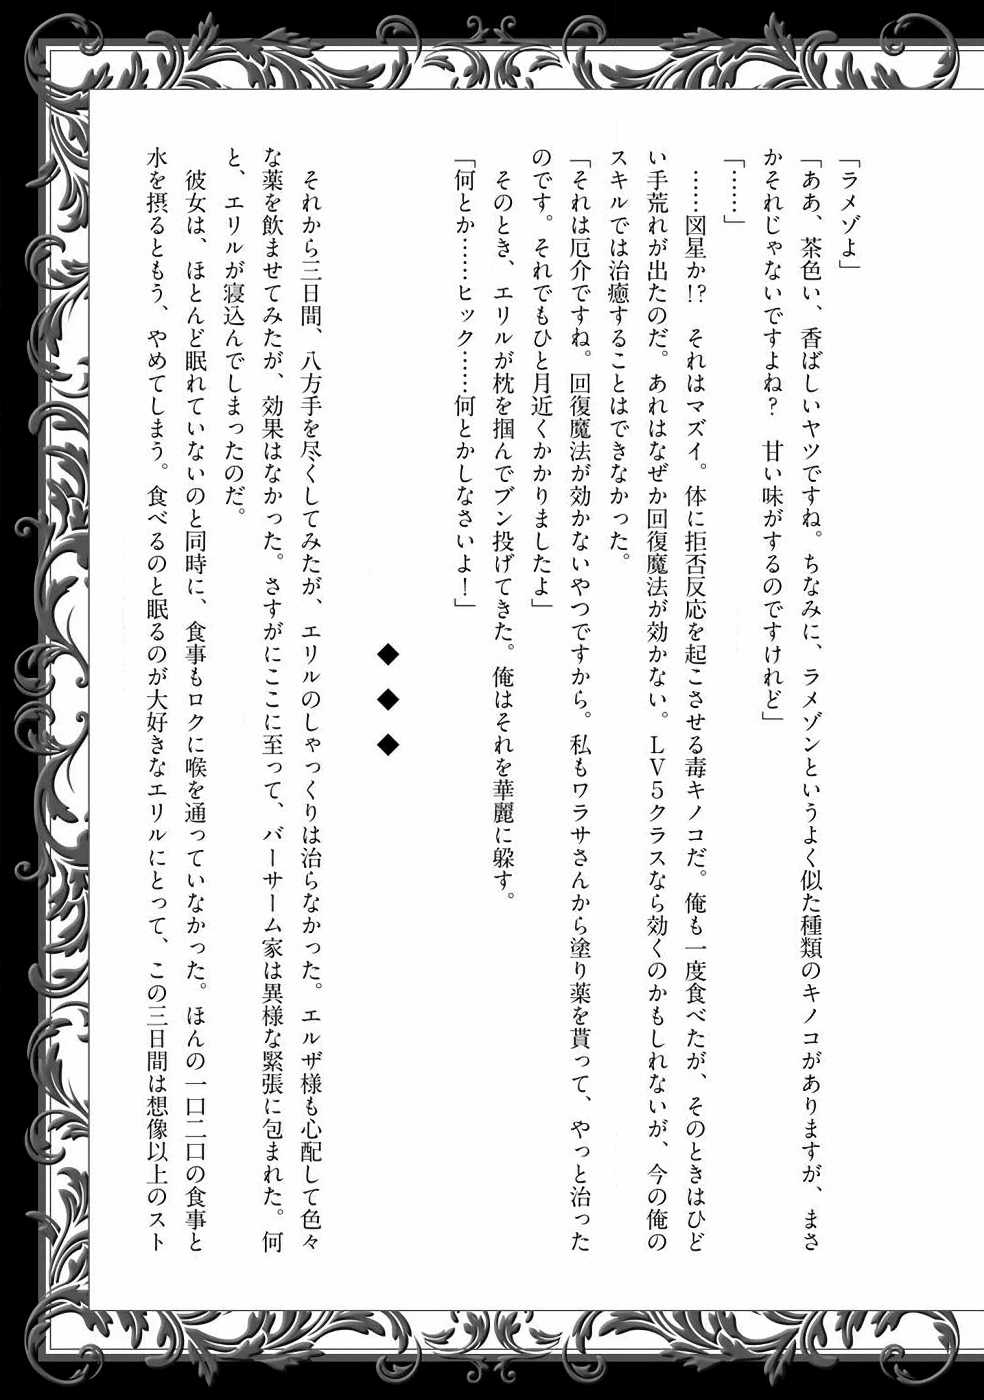 「ラメゾよ」
「ああ、茶色い、香ばしいヤツですね。ちなみに、ラメゾンというよく似た種類のキノコがありますが、まさ
かそれじゃないですよね？　甘い味がするのですけれど」
「……」
　……図星か!?　それはマズイ。体に拒否反応を起こさせる毒キノコだ。俺も一度食べたが、そのときはひど
い手荒れが出たのだ。あれはなぜか回復魔法が効かない。ＬＶ５クラスなら効くのかもしれないが、今の俺の
スキルでは治癒することはできなかった。
「それは厄介ですね。回復魔法が効かないやつですから。私もワラサさんから塗り薬を貰って、やっと治った
のです。それでもひと月近くかかりましたよ」
　そのとき、エリルが枕を掴んでブン投げてきた。俺はそれを華麗に躱す。
「何とか……ヒック……何とかしなさいよ！」
◆　◆　◆
　それから三日間、八方手を尽くしてみたが、エリルのしゃっくりは治らなかった。エルザ様も心配して色々
な薬を飲ませてみたが、効果はなかった。さすがにここに至って、バーサーム家は異様な緊張に包まれた。何
と、エリルが寝込んでしまったのだ。
　彼女は、ほとんど眠れていないのと同時に、食事もロクに喉を通っていなかった。ほんの一口二口の食事と
水を摂るともう、やめてしまう。食べるのと眠るのが大好きなエリルにとって、この三日間は想像以上のスト